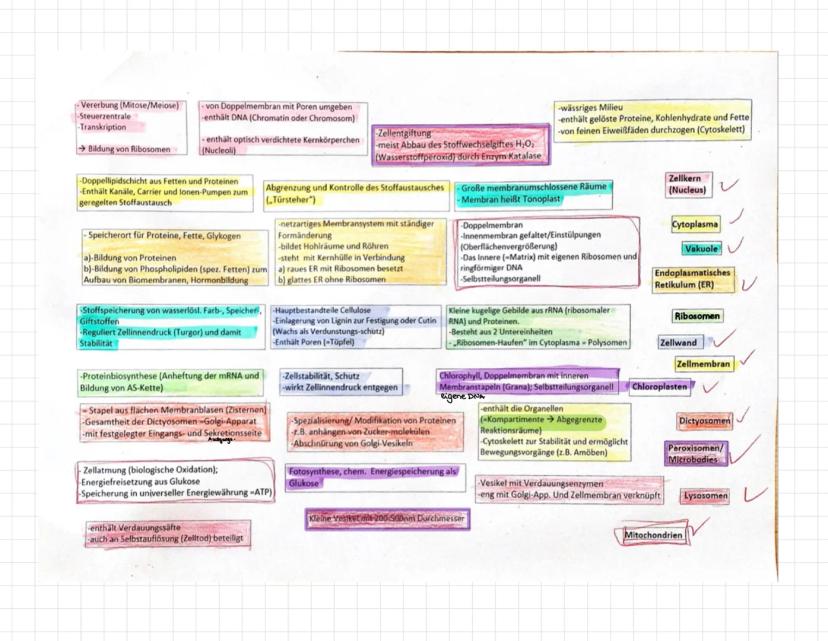 - Vererbung (Mitose/Meiose)
-Steuerzentrale
-Transkription
→ Bildung von Ribosomen
- von Doppelmembran mit Poren umgeben
-enthält DNA (Chromatin oder Chromosom)
- enthält optisch verdichtete Kernkörperchen
(Nucleoli)
-Zellentgiftung
-meist Abbau des Stoffwechselgiftes H₂O₂
(Wasserstoffperoxid) durch Enzym Katalase
-wässriges Milieu
-enthält gelöste Proteine, Kohlenhydrate und Fette
-von feinen Eiweißfäden durchzogen (Cytoskelett)
-Doppellipidschicht aus Fetten und Proteinen
-Enthält Kanäle, Carrier und Ionen-Pumpen zum
geregelten Stoffaustausch
Abgrenzung und Kontrolle des Stoffaustausches
(„Türsteher")
- Große membranumschlossene Räume
- Membran heißt Tonoplast
Zellkern
(Nucleus)
- Speicherort für Proteine, Fette, Glykogen
a)-Bildung von Proteinen
b)-Bildung von Phospholipiden (spez. Fetten) zum
Aufbau von Biomembranen, Hormonbildung
-netzartiges Membransystem mit ständiger
Formänderung
-bildet Hohlräume und Röhren
-steht mit Kernhülle in Verbindung
a) raues ER mit Ribosomen besetzt
b) glattes ER ohne Ribosomen
-Doppelmembran
-Innenmembran gefaltet/Einstülpungen
(Oberflächenvergrößerung)
-Das Innere (=Matrix) mit eigenen Ribosomen und
ringförmiger DNA
-Selbstteilungsorganell
Cytoplasma
Vakuole
Endoplasmatisches
Retikulum (ER)
-Stoffspeicherung von wasserlösl. Farb-, Speicher,
Giftstoffen
-Reguliert Zellinnendruck (Turgor) und damit
Stabilität
-Hauptbestandteile Cellulose
-Einlagerung von Lignin zur Festigung oder Cutin
(Wachs als Verdunstungs-schutz)
-Enthält Poren (=Tüpfel)
Kleine kugelige Gebilde aus rRNA (ribosomaler
RNA) und Proteinen.
-Besteht aus 2 Untereinheiten
- „Ribosomen-Haufen" im Cytoplasma = Polysomen
Ribosomen
Zellwand
Zellmembran
-Proteinbiosynthese (Anheftung der mRNA und
Bildung von AS-Kette)
-Zellstabilität, Schutz
- wirkt Zellinnendruck entgegen
Chlorophyll, Doppelmembran mit inneren
Membranstapeln (Grana); Selbstteilungsorganell
eigene DNA
Chloroplasten
= Stapel aus flachen Membranblasen (Zisternen)
-Gesamtheit der Dictyosomen =Golgi-Apparat
-mit festgelegter Eingangs- und Sekretionsseite
-Spezialisierung/ Modifikation von Proteinen
-z.B. anhängen von Zucker-molekülen
-Abschnürung von Golgi-Vesikeln
-enthält die Organellen
(=Kompartimente → Abgegrenzte
Reaktionsräume)
-Cytoskelett zur Stabilität und ermöglicht
Bewegungsvorgänge (z.B. Amöben)
Dictyosomen
Peroxisomen/
Microbodies
- Zellatmung (biologische Oxidation);
Energiefreisetzung aus Glukose
-Speicherung in universeller Energiewährung =ATP)
Fotosynthese, chem. Energiespeicherung als
Glukose
-Vesikel mit Verdauungsenzymen
-eng mit Golgi-App. Und Zellmembran verknüpft
Lysosomen
-enthält Verdauungssäfte
-auch an Selbstauflösung (Zelltod) beteiligt
Kleine Vesikel mit 200-500nm Durchmesser
Mitochondrien